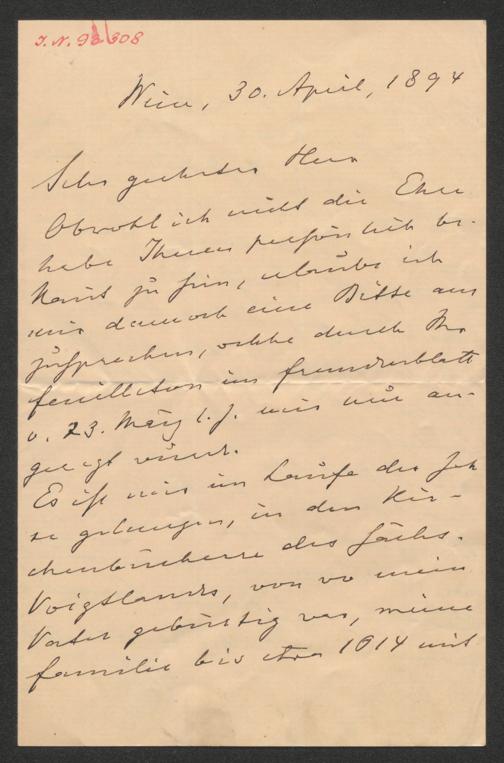 J. N. 98608
Wien, 30. April, 1894
Sehr geehrter Herr
Obwohl ich nicht die Ehre
habe Ihnen persönlich be-
kannt zu sein, erlaube ich
mir dennoch eine Bitte aus
zusprechen, welche durch Ihr
feuilleton im fremdenblatt
v. 23. März l. J. mir nur an-
geregt wurde.
Es ist mir im Laufe der Jah
re gelungen, in den Kir-
chenbüchern des sächs.
Voigtlands, von wo mein
Vater gebürtig war, meine
familie bis etwa 1614 mit